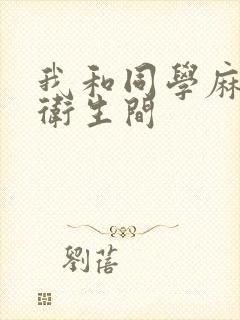 我和同學麻
衛生間
劉蓓